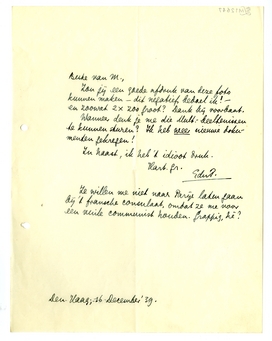 Beste van M.,
Zou jij een goede afdruk van deze foto
kunnen maken – dit negatief behoef ik! –
en zoowat 2 x zoo groot? Dank bij voorbaat.
Wanneer denk je me die Mult.
te kunnen sturen? Ik heb weer nieuwe docu-
menten gekregen!
In haast, ik heb 't idioot druk.
Hart. gr.
EduP.
Ze willen me niet naar Parijs laten gaan
bij 't fransche consulaat, omdat ze me voor
een vuile communist houden. Grappig, hè?
Den Haag, 16 December '39.